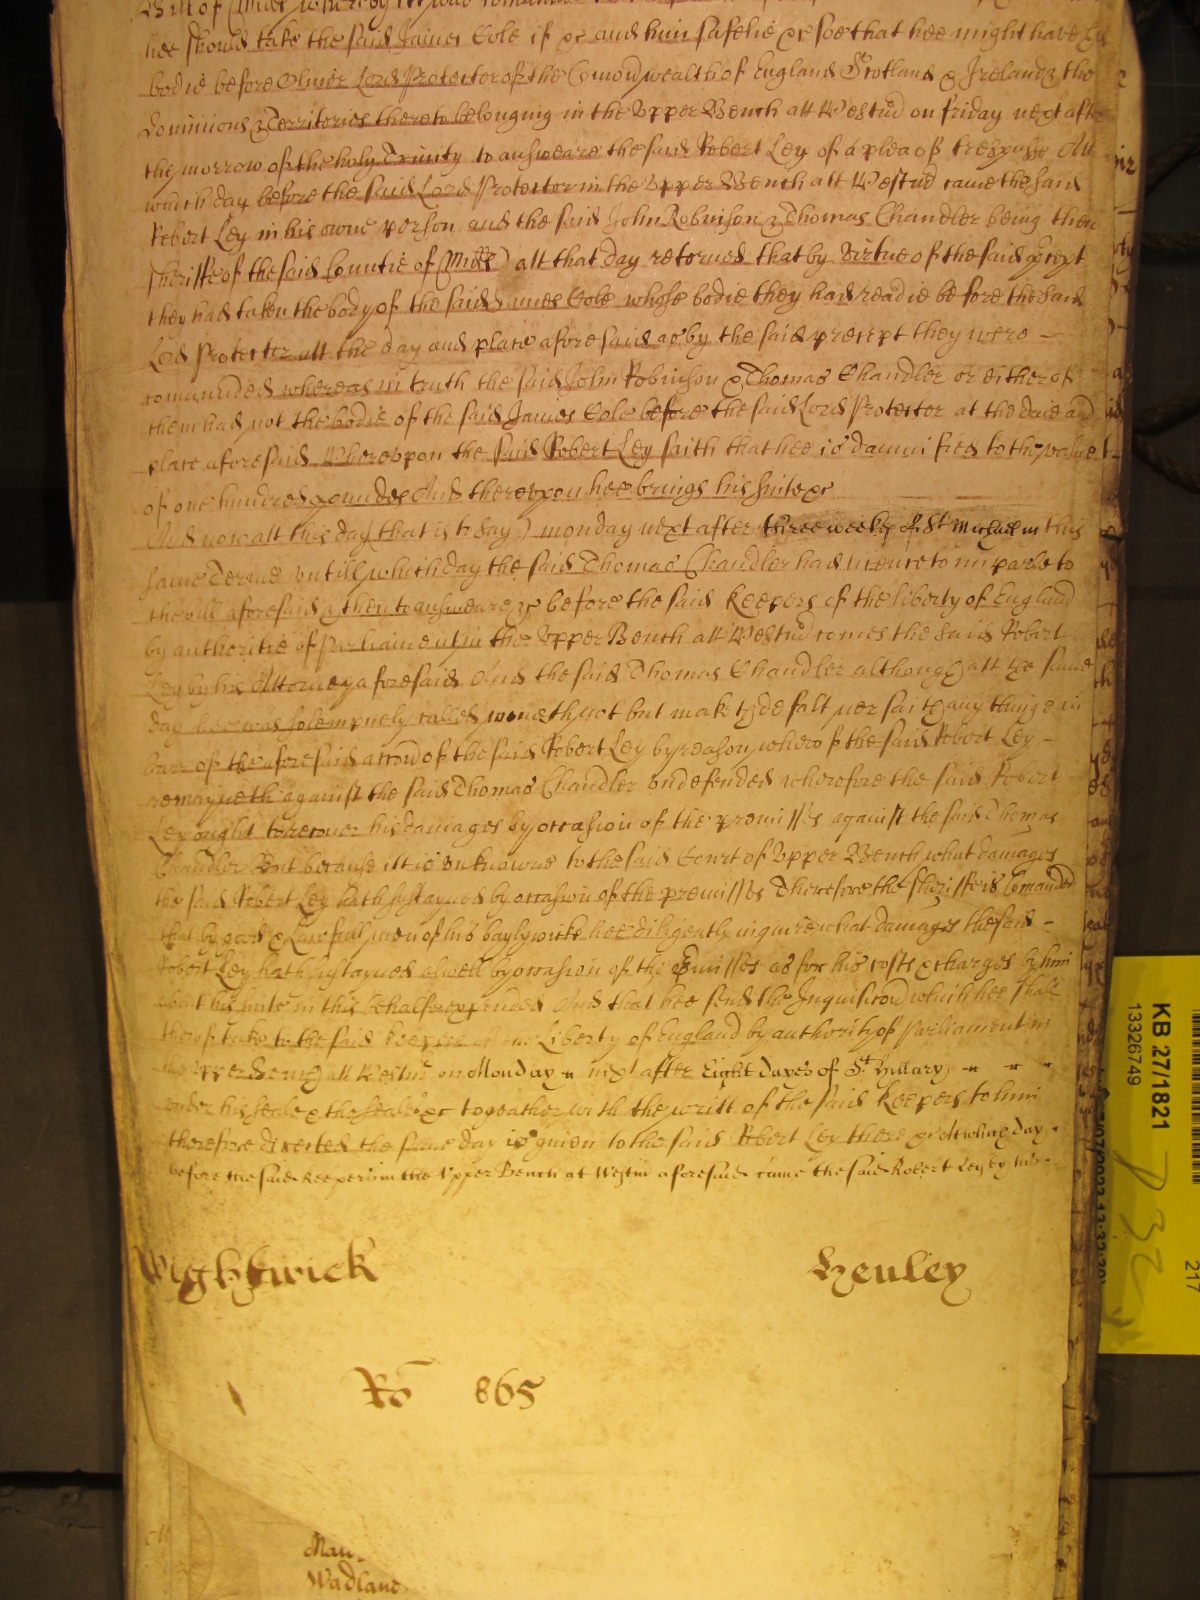 Bill of Midds whereby it was comanded
hee should take the said James Cole if &c and him safelie &c soe that hee might have his
bodie before Oliver Lord Protector of the Comonwealth of England Scotland & Ireland & the
dominions & Territories thereto belonging in the Upper Bench att Westm̄ on friday next after
the morrow of the holy Trinity to answeare the said Robert Ley of a plea of trespasse Att
which day before the said Lord Protector in the Upper Bench att Westm̄ came the said
Robert Ley in his owne person and the said John Robinson & Thomas Chandler being then
Sheriffe of the said Countie of (Midds) att that day retorned that by virtue of the said precept
they had taken the body of the said James Cole whose bodie they had readie before the said
Lord Protector att the day and place aforesaid as by the said precept they were
comanded whereas in truth the said John Robinson & Thomas Chandler or either of
them had not the bodie of the said James Cole before the said Lord Protector at the daie and
place aforesaid Whereupon the said Robert Ley saith that hee is damnified to the value
of one hundred poundes And thereupon hee brings his suite &c
And now att this day (that is to say) monday next after three weekes of St Michael in this
same Terme untill which day the said Thomas Chandler had licence to imparle to
the bill aforesaid & then to answeare &c before the said Keepers of the liberty of England
by authoritie of Parliament in the Upper Bench att Westm̄ comes the said Robert
Ley by his Attorney aforesaid And the said Thomas Chandler although att the same
day hee was solempnely called cometh not but maketh defalt nor saith any thinge in
barr of the aforesaid accon of the said Robert Ley by reason whereof the said Robert Ley
remayneth against the said Thomas Chandler undefended wherefore the said Robert
Ley ought to recover his damages by occasion of the premisses against the said Thomas
Chandler But because itt is unknowne to the said Court of Upper Bench what damages
the said Robert Ley hath sustayned by occasion of the premisses Therefore the sheriffe is Comanded
that by good & Lawfull men of his baylywicke hee diligently inquire what damages the said
Robert Ley hath sustayned aswell by occasion of the premisses as for his costs & charges by him
about his suite in this behalfe expended And that hee send the Inquisicon which hee shall
thereof take to the said Keepers of the Liberty of England by authority of Parliament in
the Upper Bench att Westm̄ on Monday next after Eight dayes of St hillary
under his seale & the seales &c togeather with the writt of the said Keepers to him
therefore directed the same day is given to the said Robert Ley there &c Att which day
before the said Keepers in the Upper Bench at Westm̄ aforesaid came the said Robert Ley by his
Wightwick Henley
Ro 865
Wadland
KB 27/1821
13326749
217